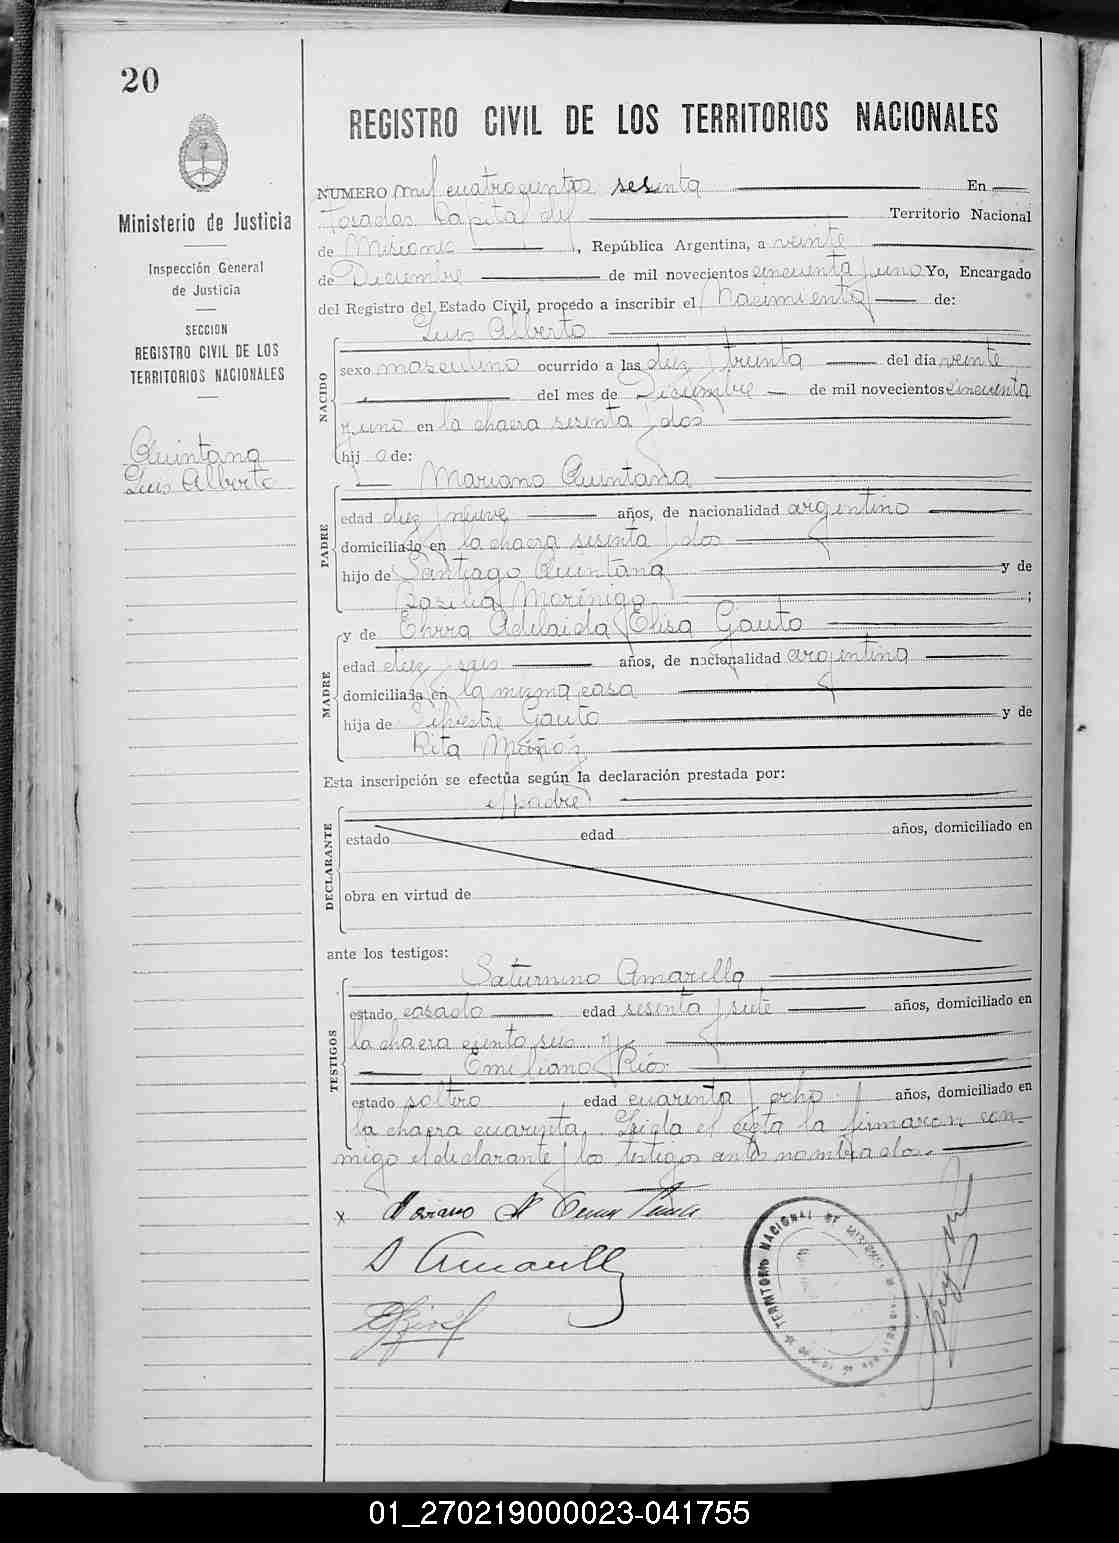 20
REGISTRO CIVIL DE LOS TERRITORIOS NACIONALES
Ministerio de Justicia
Inspección General
de Justicia
SECCION
REGISTRO CIVIL DE LOS
TERRITORIOS NACIONALES
Quintana
Luis Alberto
NUMERO mil cuatrocientos sesenta En
Posadas Capital del Territorio Nacional
de Misiones, República Argentina, a veinte
de Diciembre de mil novecientos cincuenta y uno Yo, Encargado
del Registro del Estado Civil, procedo a inscribir el Nacimiento de:
Luis Alberto
NACIDO
sexo masculino ocurrido a las diez y treinta del dia veinte
del mes de Diciembre de mil novecientos cincuenta
y uno en la chacra sesenta y dos
hij o de:
Mariano Quintana
PADRE
edad diez y nueve años, de nacionalidad argentino
domiciliado en la chacra sesenta y dos
hijo de Santiago Quintana y de
Morínigo ;
y de Adelaida Elisa Gauto
MADRE
edad diez y seis años, de nacionalidad argentina
domiciliada en la misma casa
hija de Silvestre Gauto y de
Rita Múñóz
Esta inscripción se efectúa según la declaración prestada por:
el padre
DECLARANTE
estado edad años, domiciliado en
obra en virtud de
ante los testigos:
Saturnino Amarella
TESTIGOS
estado casado edad sesenta y siete años, domiciliado en
la chacra ciento seis y
Emiliano Rios
estado soltero edad cuarenta y ocho años, domiciliado en
la chacra cuarenta. Leida el acta la firmaron con-
migo el declarante y los testigos antes nombrados.
x Mariano Quintana
S Amarilla
E Rios
TERRITORIO NACIONAL DE MISIONES
01_270219000023-041755